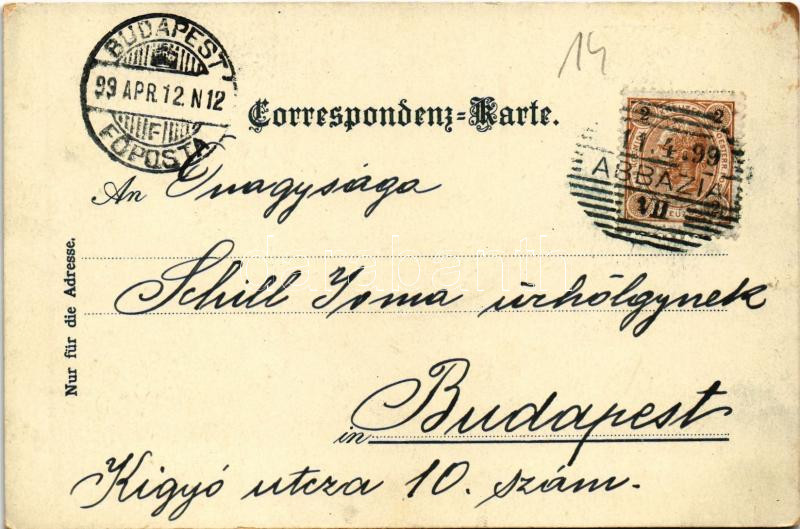 BUDAPEST
99 APR. 12. N 12
F
FŐPOSTA
14
Correspondenz-Karte.
2 2
4.99
ABBAZIA
An Önagysága
Nur für die Adresse.
Schill Irma úrhölgynek
in Budapest
Kigyó utcza 10. szám.